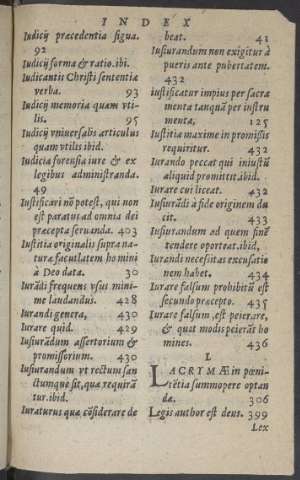 INDEX
Iudicij præcedentia signa.
92
Iudicij forma & ratio. ibi.
Iudicantis Christi sententiæ
verba. 93
Iudicij memoria quam vti-
lis. 95
Iudicij vniuersalis articulus
quam vtilis ibid.
Iudicia forensia iure & ex
legibus administranda.
49
Iustificari nō potest, qui non
est paratus ad omnia dei
præcepta seruanda. 403
Iustitia originalis supra na-
turæ facultatem homini
à Deo data. 30
Iurādi frequens vsus mini-
me laudandus. 428
Iurandi genera, 430
Iurare quid. 429
Iusiurādum assertorium &
promissorium. 430
Iusiurandum vt rectum san
ctumque sit, quæ requirā
tur. ibid.
Iuraturus quæ cōsiderare de
beat. 41
Iusiurandum non exigitur à
pueris ante pubertatem.
432
iustificatur impius per sacra
menta tanquā per instru
menta, 125
Iustitia maxime in promissis
requiritur. 432
Iurando peccat qui iniustū
aliquid promittit. ibid.
Iurare cui liceat. 432
Iusiurādi à fide originem du
cit. 433
Iusiurandum ad quem finē
tendere oporteat. ibid,
Iurandi necessitas excusatio
nem habet. 434
Iurare falsum prohibitū est
secundo præcepto. 435
Iurare falsum, est peierare,
& quot modis peierāt ho
mines. 436
L
LACRYMÆ in pœni-
tētia summopere optan
dæ. 306
Legis author est deus. 399
Lex